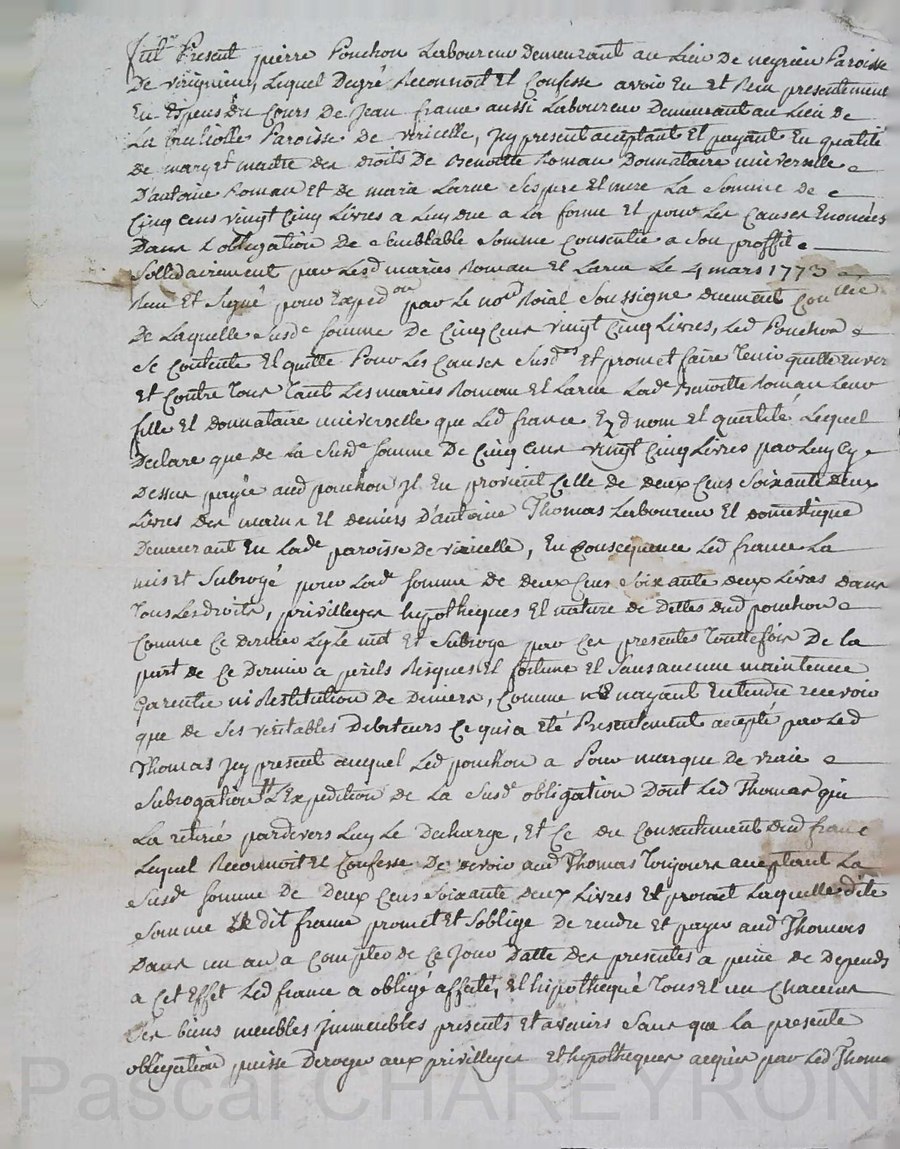 fut Présent pierre Ponchon Laboureur Demeurant au Lieu De neyrieu Paroisse
De virignieu, Lequel Degré Reconnoit Et Confesse avoir Eu et Reçu presentement
En Espesses Du Cours De Jean france aussi Laboureur Demeurant au Lieu de
La Paroisse De viricelle, Jcy present acceptant Et payant En qualité
de mary Et maitre des Droits De Benoitte Roman Donnataire universelle
D'antoine Roman Et de marie Larue Ses pere Et mere La Somme de
Cinq cens vingt Cinq Livres a Luy due a La forme Et pour Les Causes Enoncées
Dans L'obligation De Semblable Somme Consentie a Son proffit
Sollidairement par Lesd maries Roman Et Larue Le 4 mars 1773
Reçu Et Signé pour Expedon par Le nore Roial Soussigne duement Conllée
De Laquelle Susde Somme De Cinq Cens vingt Cinq Livres, Led Ponchon
Se Contente Et quitte Pour Les Causes Susdes Et promet faire Tenir quitte Envers
Et Contre Tous Tant Les maries Roman Et Larue Lade Benoitte Roman Leur
fille Et Donnataire universelle que Led france Ezd nom et qualité, Lequel
Declare que de La Susde Somme De Cinq Cens vingt Cinq Livres par Luy Cy
Dessus payée aud ponchon Jl En provient Celle de deux Cens Soixante deux
Livres Des mains Et deniers D'antoine Thomas Laboureur Et domestique
Demeurant En Lade paroisse De viricelle, En Consequence Led france La
mis Et Subrogé pour Lade Somme de deux Cens Soixante deux Livres dans
Tous Les droits, privilleges hypotheques Et nature de Dettes dud ponchon
Comme Ce dernier Ly Le met Et Subroge par Ces presentes Touttefois De la
part de Ce Dernier a perils Risques Et fortune Et Sans aucune maintenue
Garentie ni Restitution De Deniers, Comme n'Enayant Entendu recevoir
que de Ses veritables Debiteurs Ce qui a Eté Presentement accepté par Led
Thomas Jcy present auquel Led ponchon a Pour marque de vraie
Subrogation L'Expedition De La Susde obligation Dont Led Thomas qui
La retirée pardevers Luy Le Decharge, Et Ce du Consentement dud france
Lequel Reconnoit Et Confesse De devoir aud Thomas Toujours acceptant La
Susde Somme De Deux Cens Soixante deux Livres Et promet Laquelle dite
Somme Le dit france promet Et S'oblige De rendre Et payer aud Thomas
Dans un an a Compter de Ce Jour Datte Des presentes a peine de Depends
a Cet Effet Led france a obligé affecté, Et hipothequé Tous Et un Chacuns
Ses biens meubles Jmmeubles presents Et avenirs Sans que La presente
obligation puisse Deroger aux privilleges Et hypotheques acquis par Led Thomas
Pascal CHAREYRON